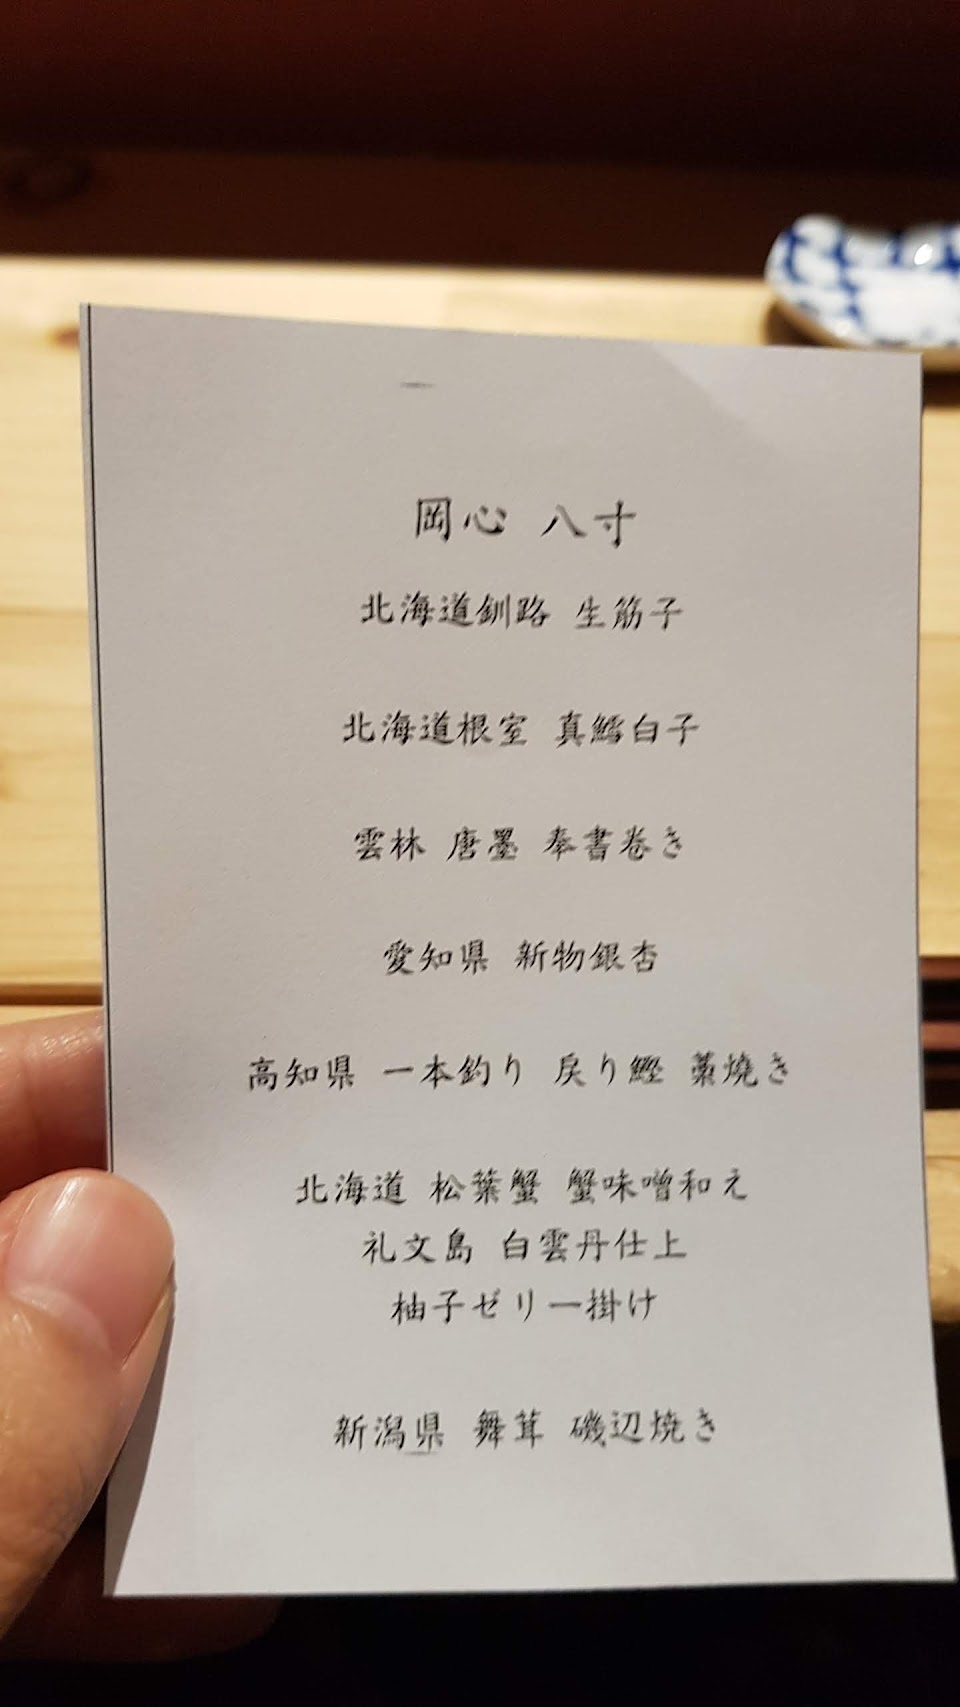 岡心 八寸
北海道釧路 生筋子
北海道根室 真鱈白子
雲林 唐墨 奉書巻き
愛知県 新物銀杏
高知県 一本釣り 戻り鰹 藁焼き
北海道 松葉蟹 蟹味噌和え
礼文島 白雲丹仕上
柚子ゼリー掛け
新潟県 舞茸 磯辺焼き